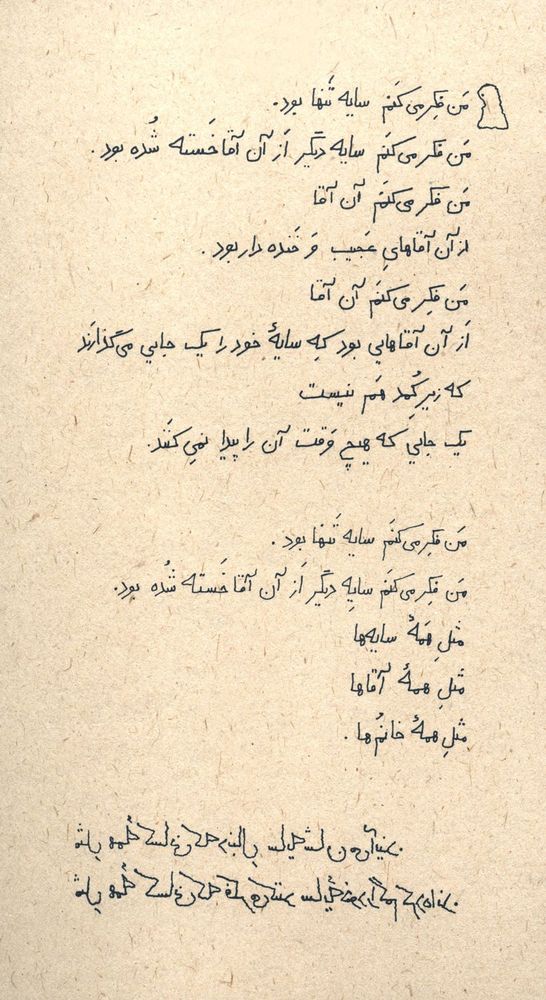 مَن فِکر می‌کنَم سایه تَنها بود.
مَن فکر می‌کنَم سایه دیگر اَز آن آقا خَسته شُده بود.
مَن فکر می‌کنَم آن آقا
از آن آقاهایِ عَجیب وَ خَنده دار بود.
مَن فِکر می‌کنَم آن آقا
اَز آن آقاهایی بود کِه سایهٔ خود را یک جایی می‌گذارَند
که زیرِ کُمد هَم نیست
یک جایی که هیچ وَقت آن را پیدا نمی‌کنَند.
مَن فِکر می‌کنَم سایه تَنها بود.
مَن فِکر می‌کنَم سایه دیگر اَز آن آقا خَسته شُده بود.
مثلِ هَمهٔ سایه‌ها
مَثلِ همهٔ آقاها
مثلِ همهٔ خانُم‌ها.